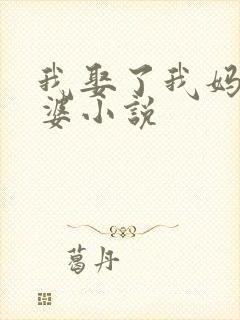 我娶了我妈
婆小说
葛丹